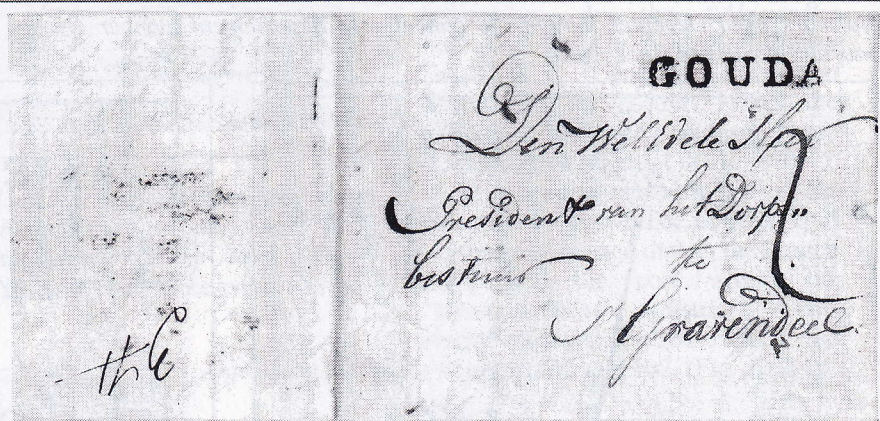 GOUDA
Den WelEdele Heer
President van het Dorps
bestuur te
s' Gravendeel